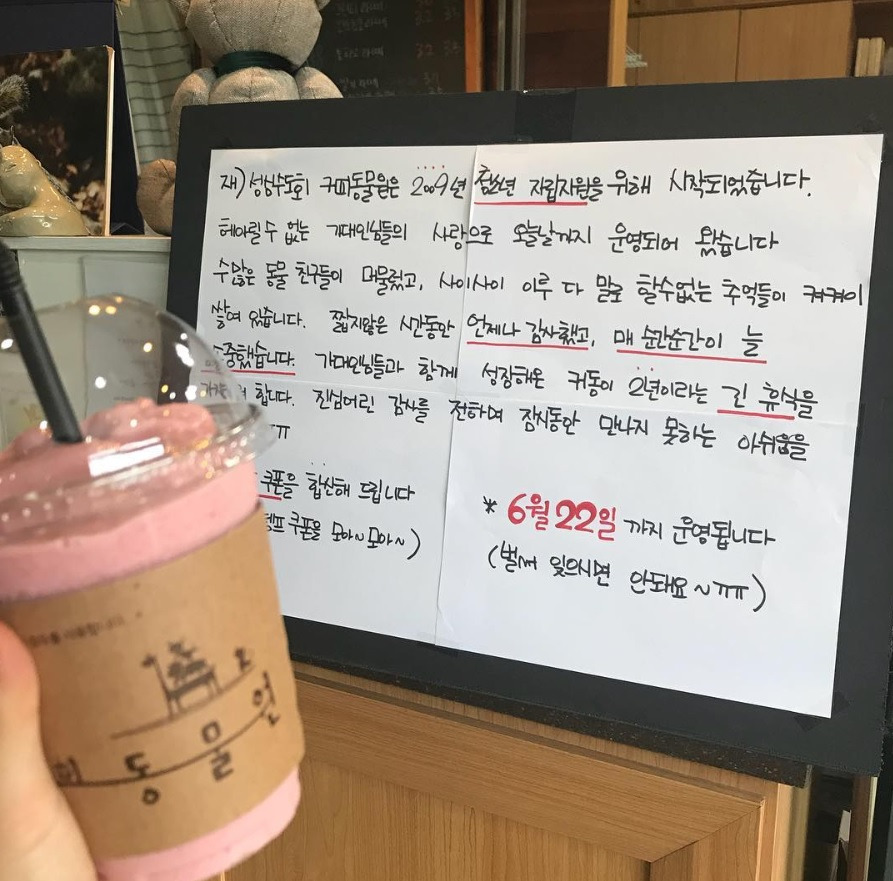 재) 성심수도회 커피동물원은 2009년 청소년 자립지원을 위해 시작되었습니다.
헤아릴 수 없는 가대인님들의 사랑으로 오늘날까지 운영되어 왔습니다
수많은 동물 친구들이 머물렀고, 사이사이 이루 다 말로 할수없는 추억들이 켜켜이
쌓여 있습니다. 짧지않은 시간동안 언제나 감사했고, 매 순간순간이 늘
소중했습니다. 가대인님들과 함께 성장해온 커동이 2년이라는 긴 휴식을
합니다. 진심어린 감사를 전하며 잠시동안 만나지 못하는 아쉬움을
ㅠ
쿠폰을 합산해 드립니다
쿠폰을 모아~모아~)
* 6월 22일 까지 운영됩니다
(벌써 잊으시면 안돼요~ㅠㅠ)
동물원